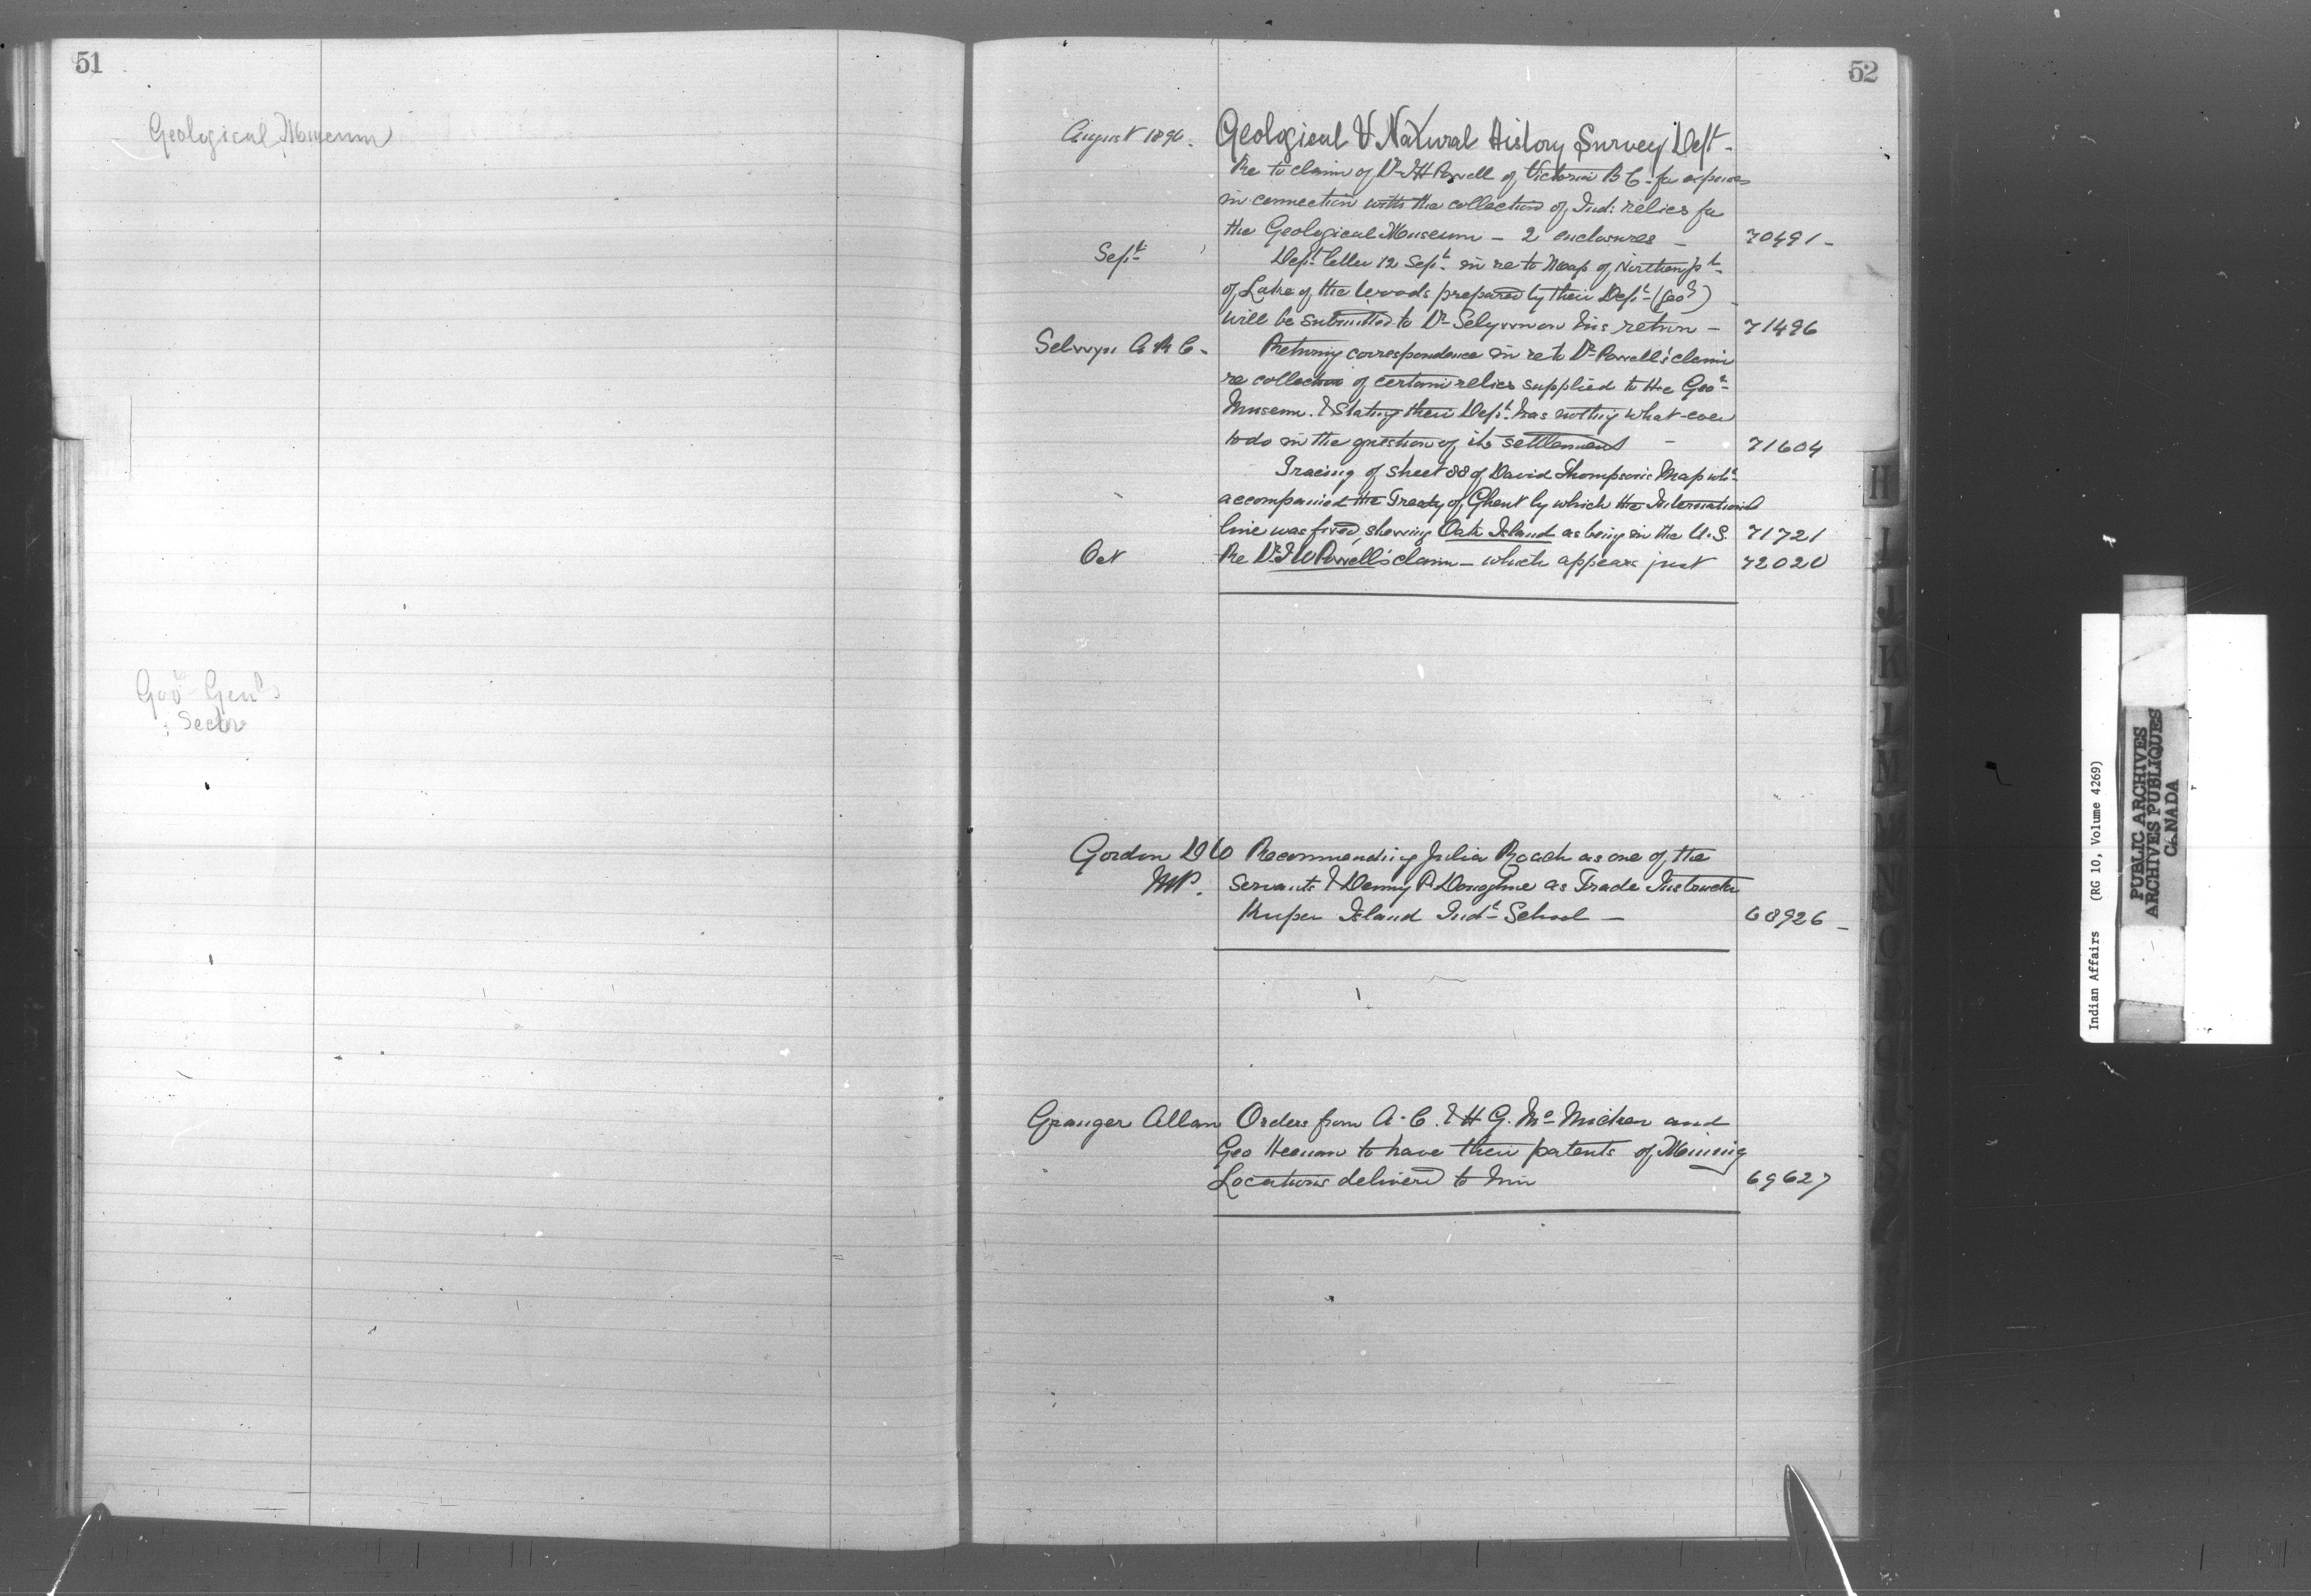 51
Geological Museum
Gov Genls
Secty
52
August 1890. Geological & Natural History Survey Dept -
Re to claim of Dr I H Powell of Victoria B C - for expenses
in connection with the collection of Ind: relics for
the Geological Museum - 2 enclosures - 70491 -
Sept Dept letter 12 Sept in re to Map of Northern pt
of Lake of the Woods prepared by their Dept (Geol)
will be submitted to Dr Selwyn on his return - 71496
Selwyn A R C - Returning correspondence in re to Dr Powell's claim
re collection of certain relics supplied to the Geol
Museum. & Stating their Dept has nothing what-ever
to do in the question of its settlement - 71604
Tracing of sheet 88 of David Thompson's Map wh
accompanied the Treaty of Ghent by which the International
line was fixed, shewing Oak Island as being in the U.S. 71721
Oct Re Dr I W Powell's claim - which appears just 72020
Gordon D W Recommending Julia Roach as one of the
MP. Servants & Denny P. Donoghue as Trade Instructor
Kuper Island Indl School - 68926 -
Granger Allan Orders from A. C. & H G. Mc Micken and
Geo Heenan to have their patents of Mining
Locations delivered to him 69627
H
I
J
K
L
M
N
O
Indian Affairs (RG 10, Volume 4269)
PUBLIC ARCHIVES
ARCHIVES PUBLIQUES
CANADA